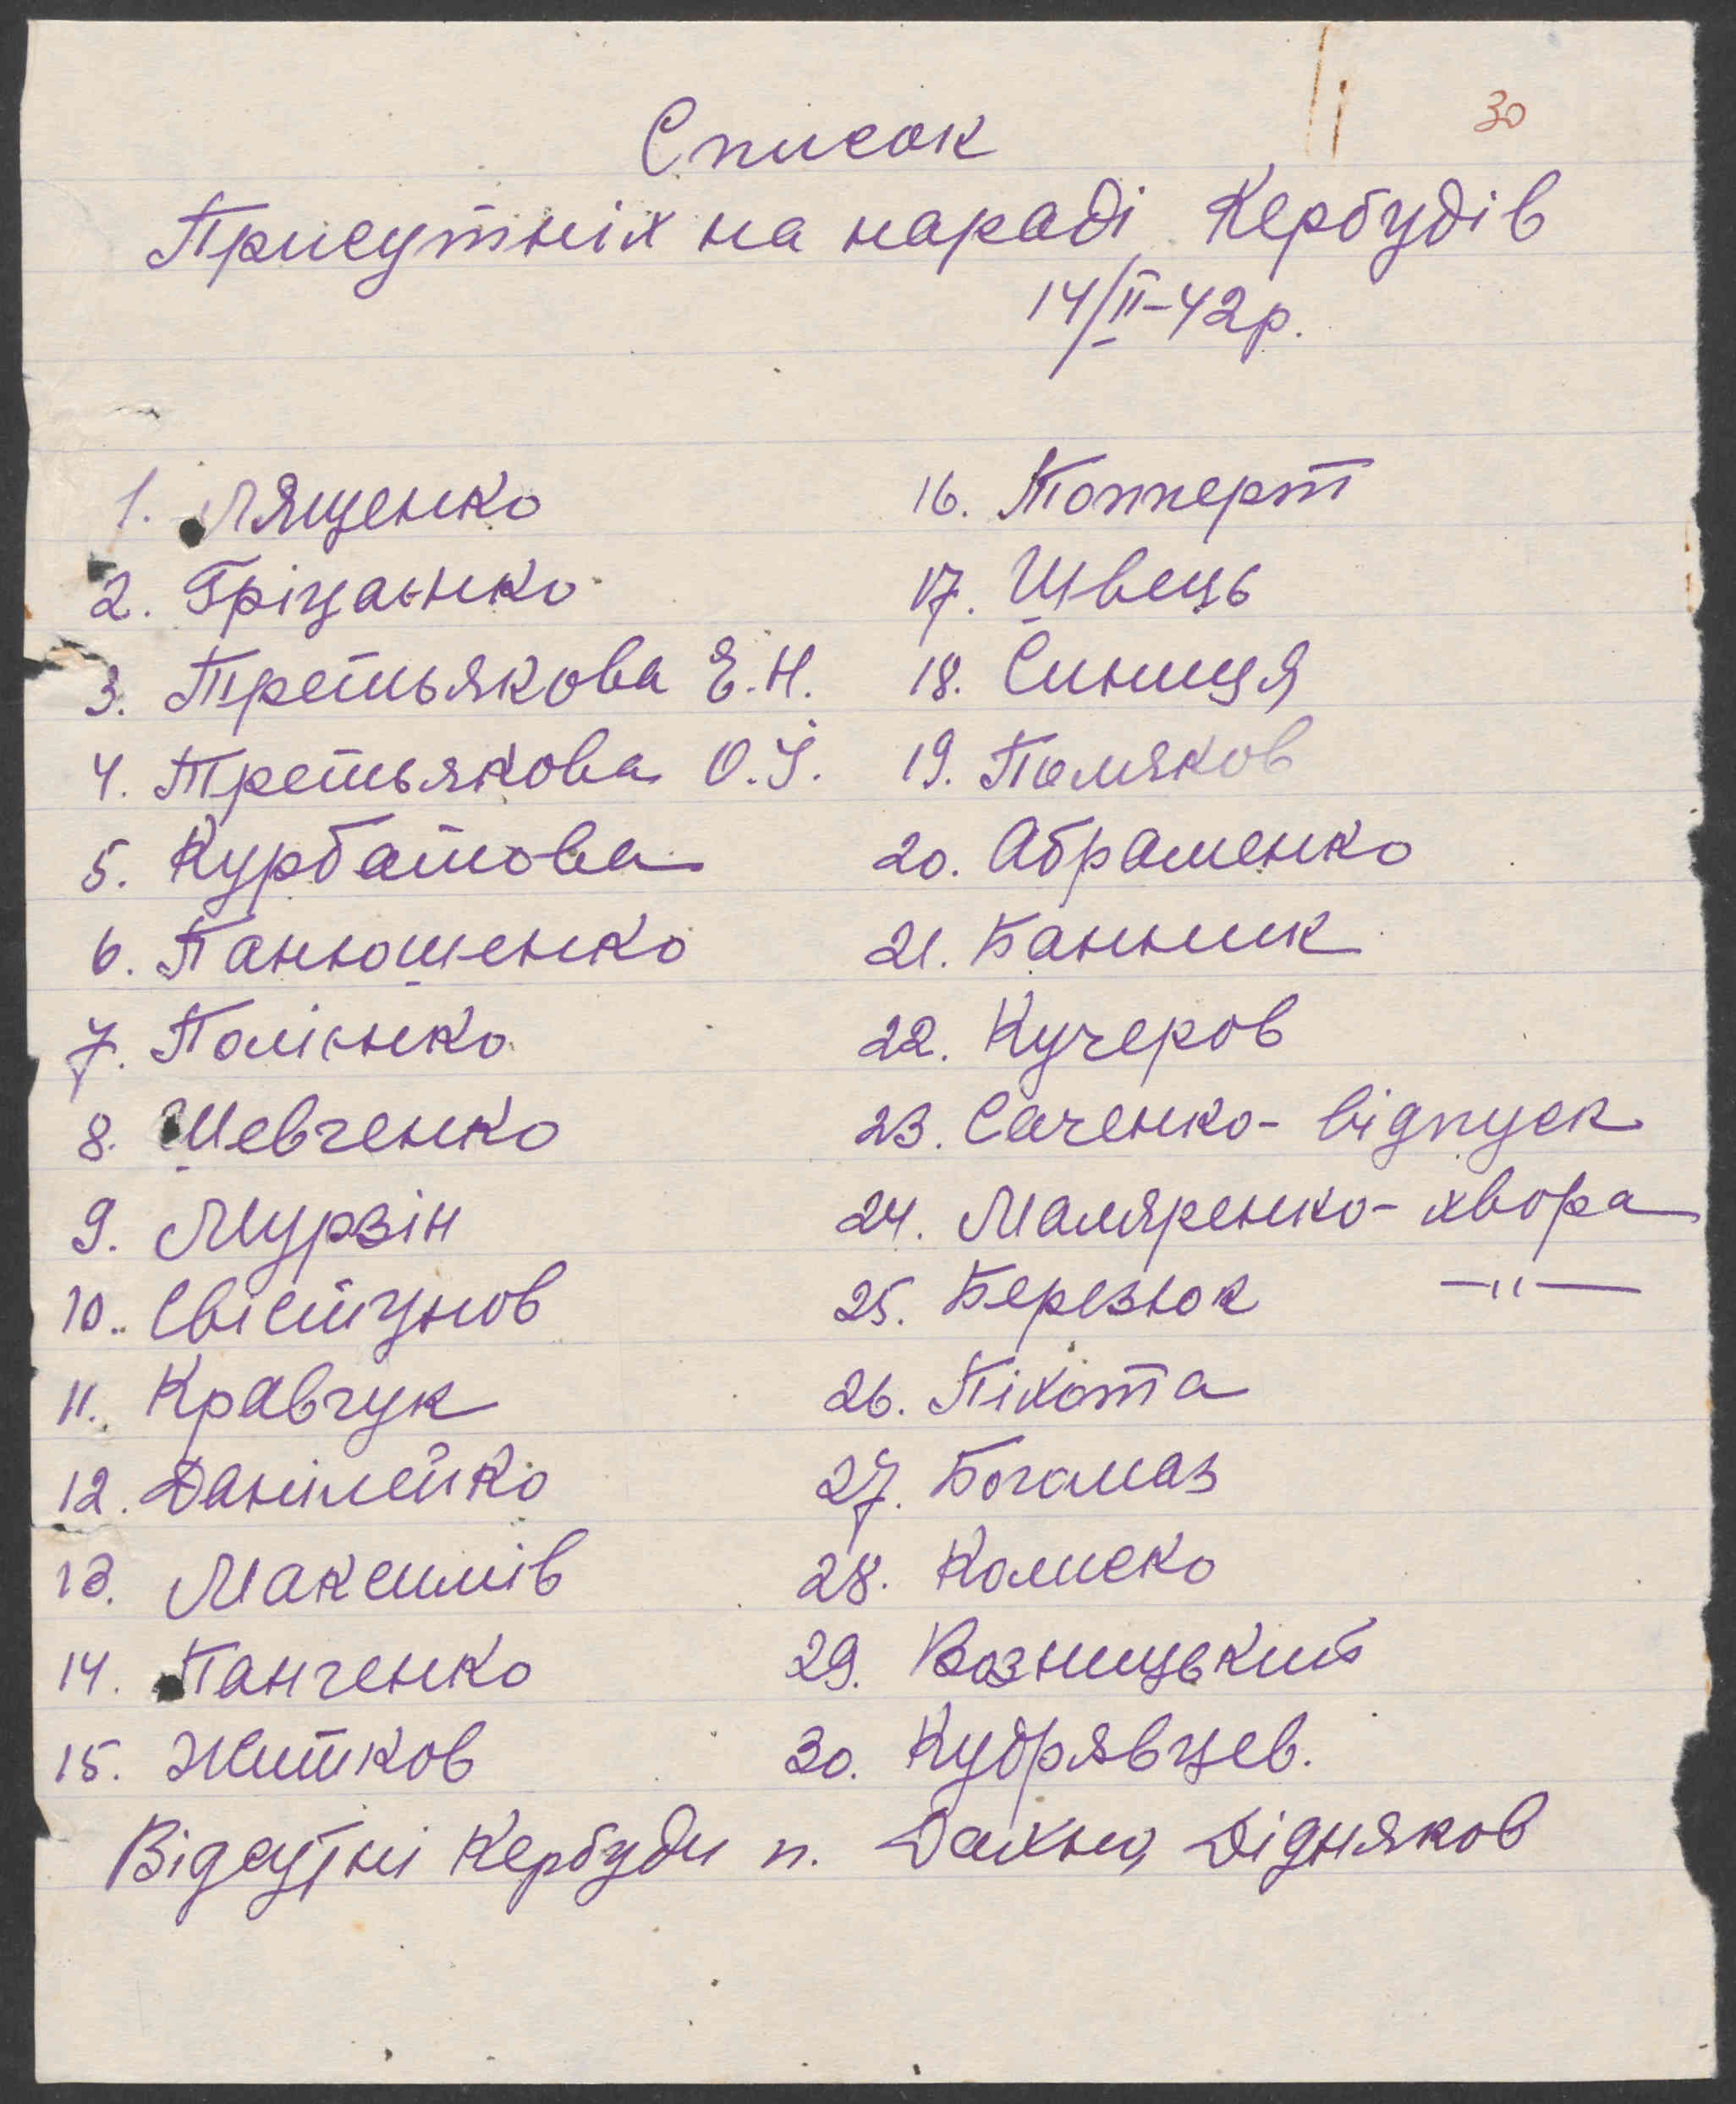 30
Список
Присутніх на нараді Кербудів
14/II-42р.
1. Лященко
2. Гріцанко
3. Третьякова Е.Н.
4. Третьякова О.І.
5. Курбатова
6. Панюшенко
7. Полінко
8. Шевченко
9. Мурзін
10. Свістунов
11. Кравчук
12. Данілейко
13. Максимів
14. Панченко
15. Житков
16. Топперт
17. Швець
18. Синиця
19. Поляков
20. Абраменко
21. Банник
22. Кучеров
23. Саченко - відпуск
24. Маляренко - хвора
25. Березюк —"—
26. Піхота
27. Богомаз
28. Колиско
29. Возницький
30. Кудрявцев.
Відсутні Кербуди п. Дахно, Дідняков